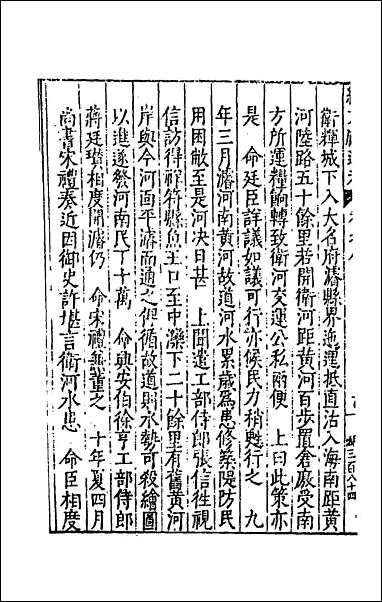 衛輝城下入大名府濬縣界迤邐抵直沽入海南距黃
河陸路五十餘里若開衛河距黃河百步置倉廒受南
方所運糧餉轉致衛河交運公私兩便 上曰此策亦
是 命廷臣詳議如議可行亦候民力稍甦行之 九
年三月濬河南黃河故道河水累歲為患修築隄防民
用困敝至是河決日甚 上聞遣工部侍郎張信往視
信訪得祥符縣魚王口至中灤下二十餘里有舊黃河
岸與今河面平濬而通之但循故道則水勢可殺繪圖
以進遂發河南民丁十萬 命興安伯徐亨工部侍郎
蔣廷瓚相度開濬仍 命宋禮兼董之 十年夏四月
尚書宋禮奏近因御史許堪言衛河水患 命臣相度